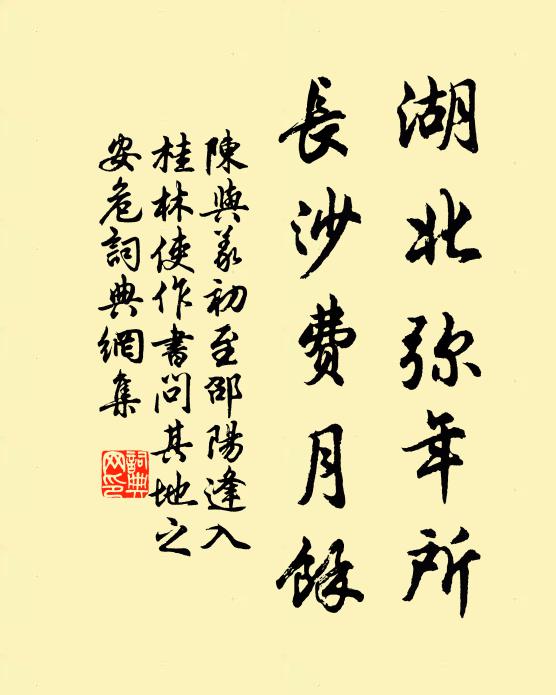 湖北弥年所
長沙费月餘
陳與義初至邵陽逢入
桂林使作書問其地之
安危詞典網集
詞典网印